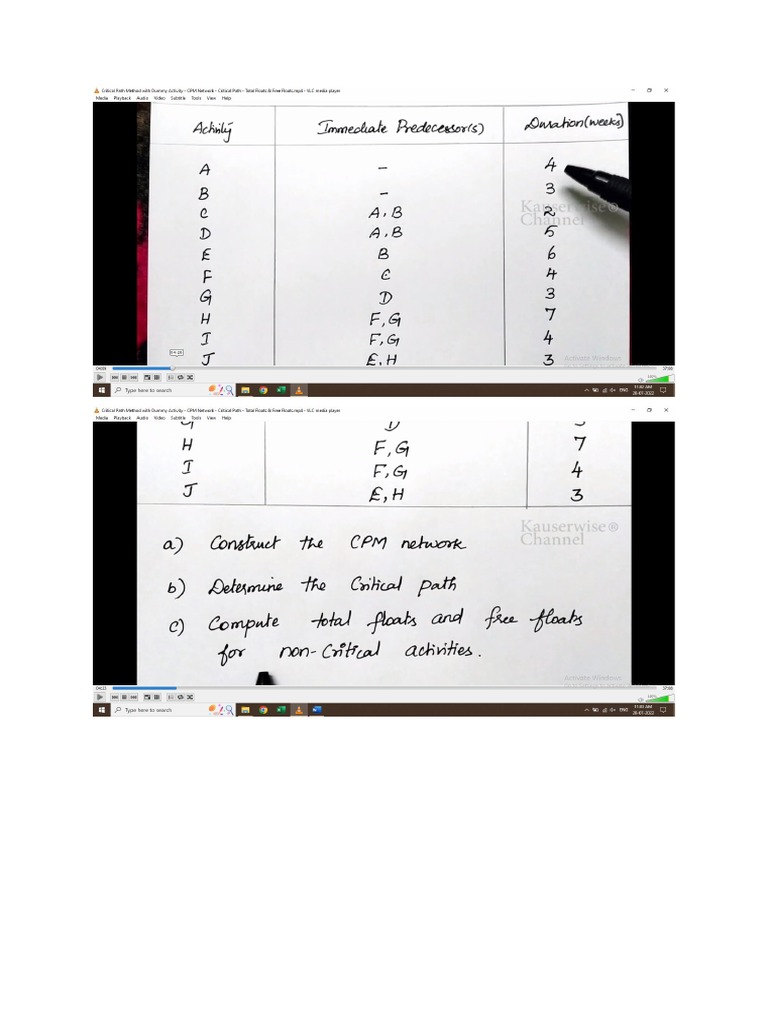 Critical Path Method with Dummy Activity – CPM Network - Critical Path – Total Floats & Free Floats.mp4 - VLC media player
Media Playback Audio Video Subtitle Tools View Help
Activity Immediate Predecessor(s) Duration(weeks)
A - 4
B - 3
C A,B 2
D A,B 5
E B 6
F C 4
G D 3
H F,G 7
I F,G 4
J E,H 3
Kauserwise®
Channel
Activate Windows
04:09 37:55
Type here to search
ENG 11:40 AM
Critical Path Method with Dummy Activity – CPM Network - Critical Path – Total Floats & Free Floats.mp4 - VLC media player
Media Playback Audio Video Subtitle Tools View Help
G D 3
H F,G 7
I F,G 4
J E,H 3
Kauserwise®
Channel
a) Construct the CPM network
b) Determine the Critical path
c) Compute total floats and free floats
for non-Critical activities.
Activate Windows
Type here to search
ENG